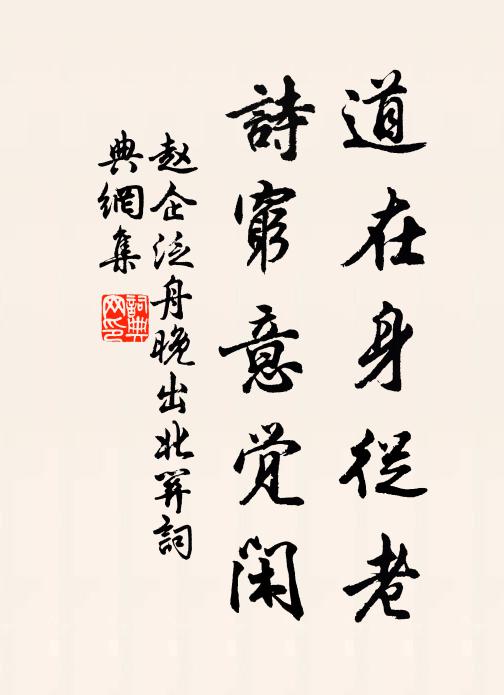 道在身從老
詩窮意覺閑
赵企泛舟晚出北關詞
典網集
詞典
网印